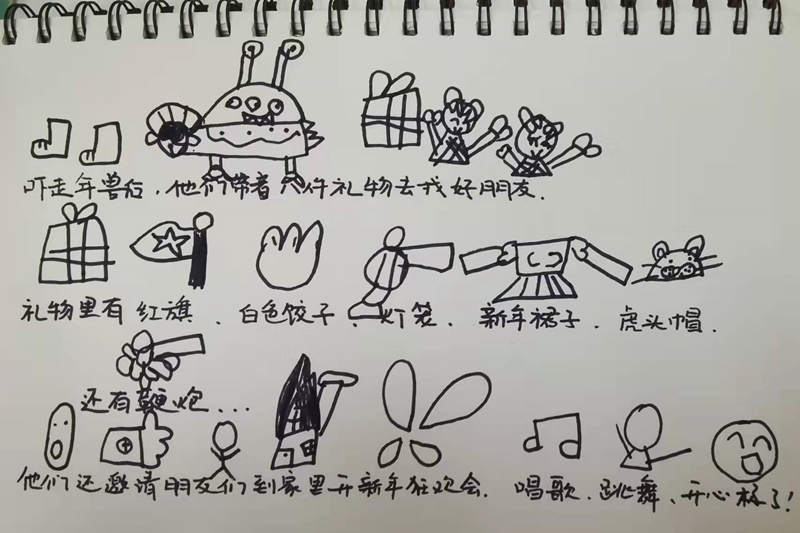 吓走年兽后，他们带着八件礼物去找好朋友.
礼物里有红旗、白色饺子、灯笼、新年裙子、虎头帽.
还有鞭炮...
他们还邀请朋友们到家里开新年狂欢会. 唱歌、跳舞、开心极了!